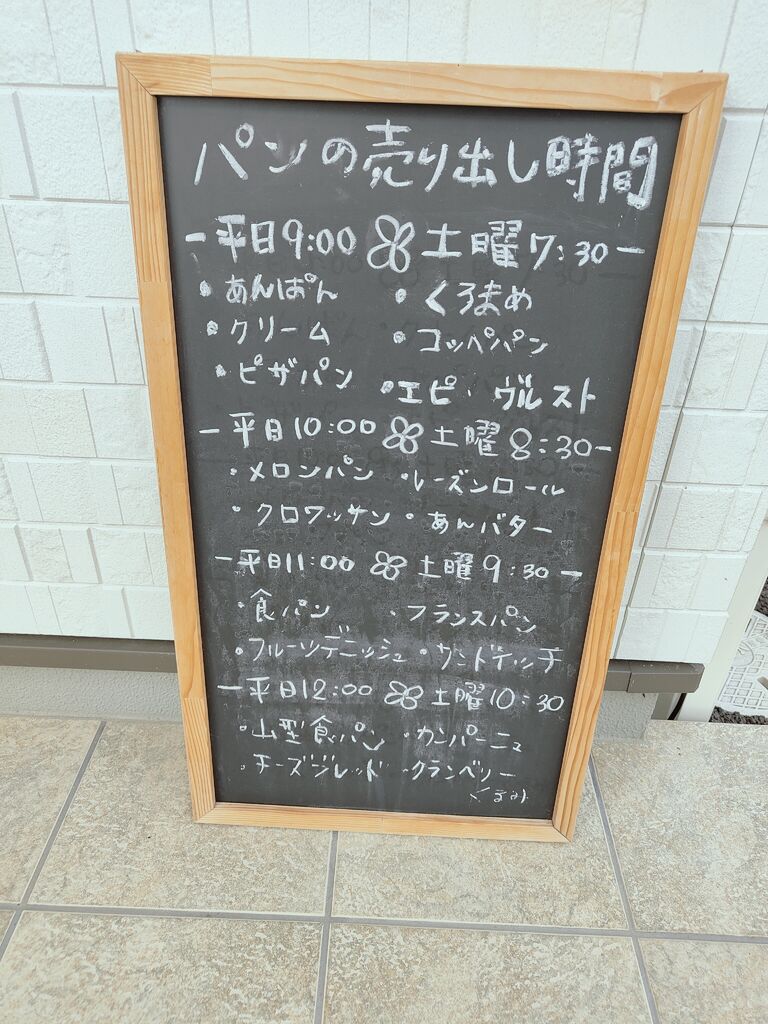 パンの売り出し時間
ー平日9:00 土曜7:30ー
・あんぱん ・くろまめ
・クリーム ・コッペパン
・ピザパン ・エピ・ヴルスト
ー平日10:00 土曜8:30ー
・メロンパン ・レーズンロール
・クロワッサン ・あんバター
ー平日11:00 土曜9:30ー
・食パン ・フランスパン
・フルーツデニッシュ ・サンドイッチ
ー平日12:00 土曜10:30
・山型食パン ・カンパーニュ
・チーズブレッド ・クランベリー
くるみ